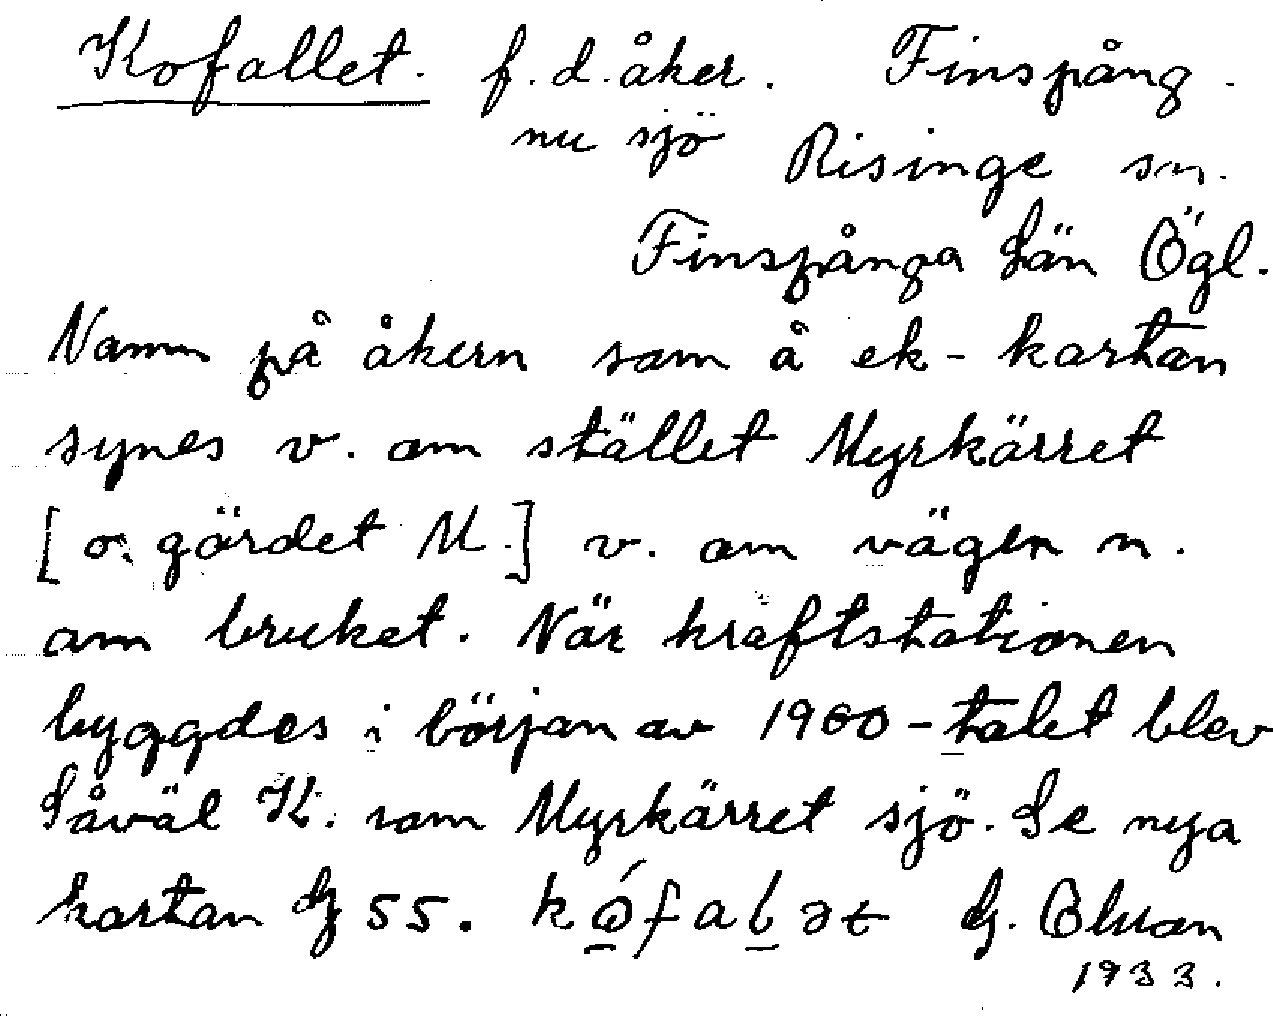 Kofallet. f.d. åker. Finspång.
nu sjö Risinge sn.
Finspånga län Ögl.
Namn på åkern som å ek-kartan
synes v. om stället Myrkärret
[o. gärdet M.] v. om vägen n.
om bruket. När kraftstationen
byggdes i början av 1900-talet blev
såväl K. som Myrkärret sjö. Se nya
kartan 55.
1933.